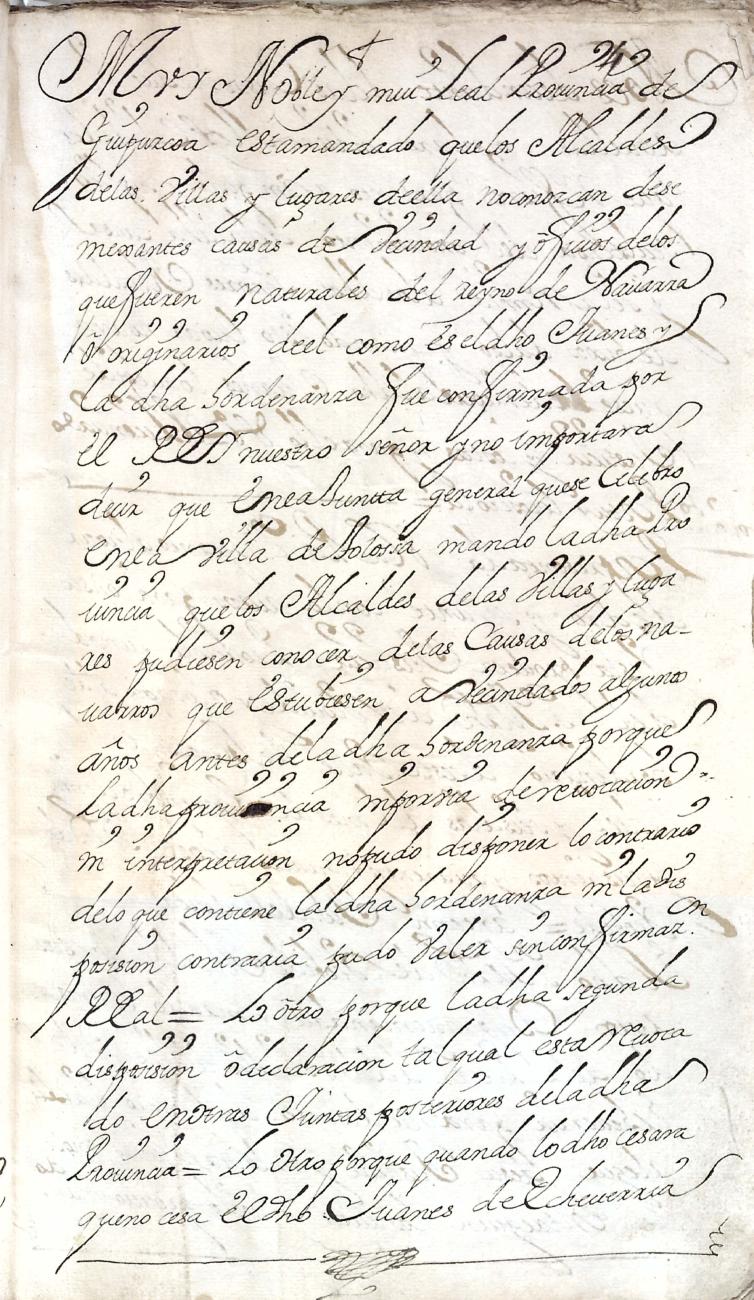 24
Muy Noble y mui Leal Prouincia de
Guipuzcoa esta mandado que los Alcaldes
de las Villas y lugares de ella no conozcan de se
mexantes causas de Vecindad y oficios de los
que fueren naturales del reyno de Nauarra
ô originarios de el como es el dho Juanes y
la dha hordenanza fue confirmada por
el Rey nuestro señor y no importara
decir que en ea Juntta general que se Celebro
en ea Villa de Tolossa mando la dha Pro
uincia que los Alcaldes de las Villas y luga
res pudiesen conocer de las Causas de los na-
uarros que estubiesen avecindados algunos
años antes de la dha hordenanza porque
la dha prouincia ni por via de reuocacion
ni interpretacion no pudo disponer lo contrario
de lo que contiene la dha hordenanza ni la dis
posision contraria pudo valer sin confirmaz.on
Real = Lo otro porque la dha segunda
disposision ô declaracion tal qual esta reuoca
do en otras Juntas posteriores de la dha
Prouincia = Lo otro porque quando lo dho cesara
que no cesa el dho Juanes de Echeuerria